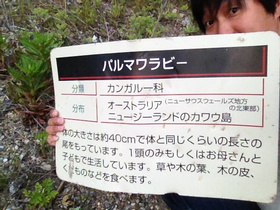 パルマワラビー
分類 カンガルー科
分布 オーストラリア(ニューサウスウェールズ地方の北東部)
ニュージーランドのカワウ島
体の大きさは約40cmで体と同じくらいの長さの
尾をもっています。1頭のみもしくはお母さんと
子どもで生活しています。草や木の葉、木の皮、
く ものなどを食べます。